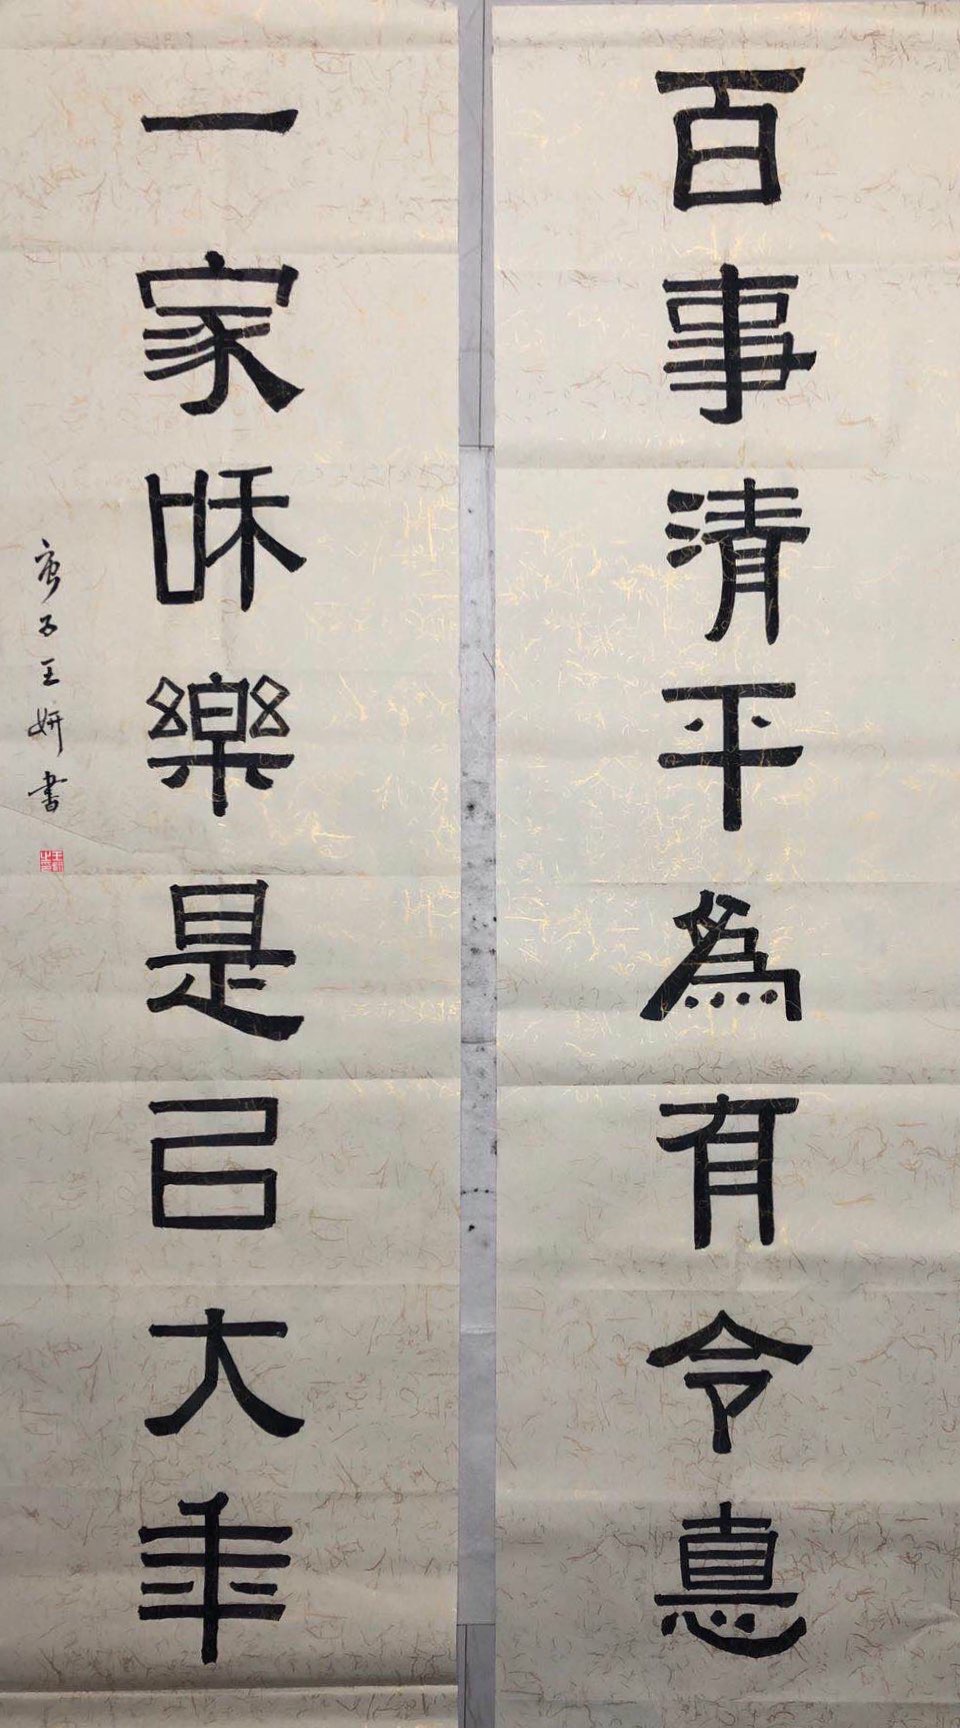 百事清平為有令悳
一家咊樂是㠯大年
庚子王妍书